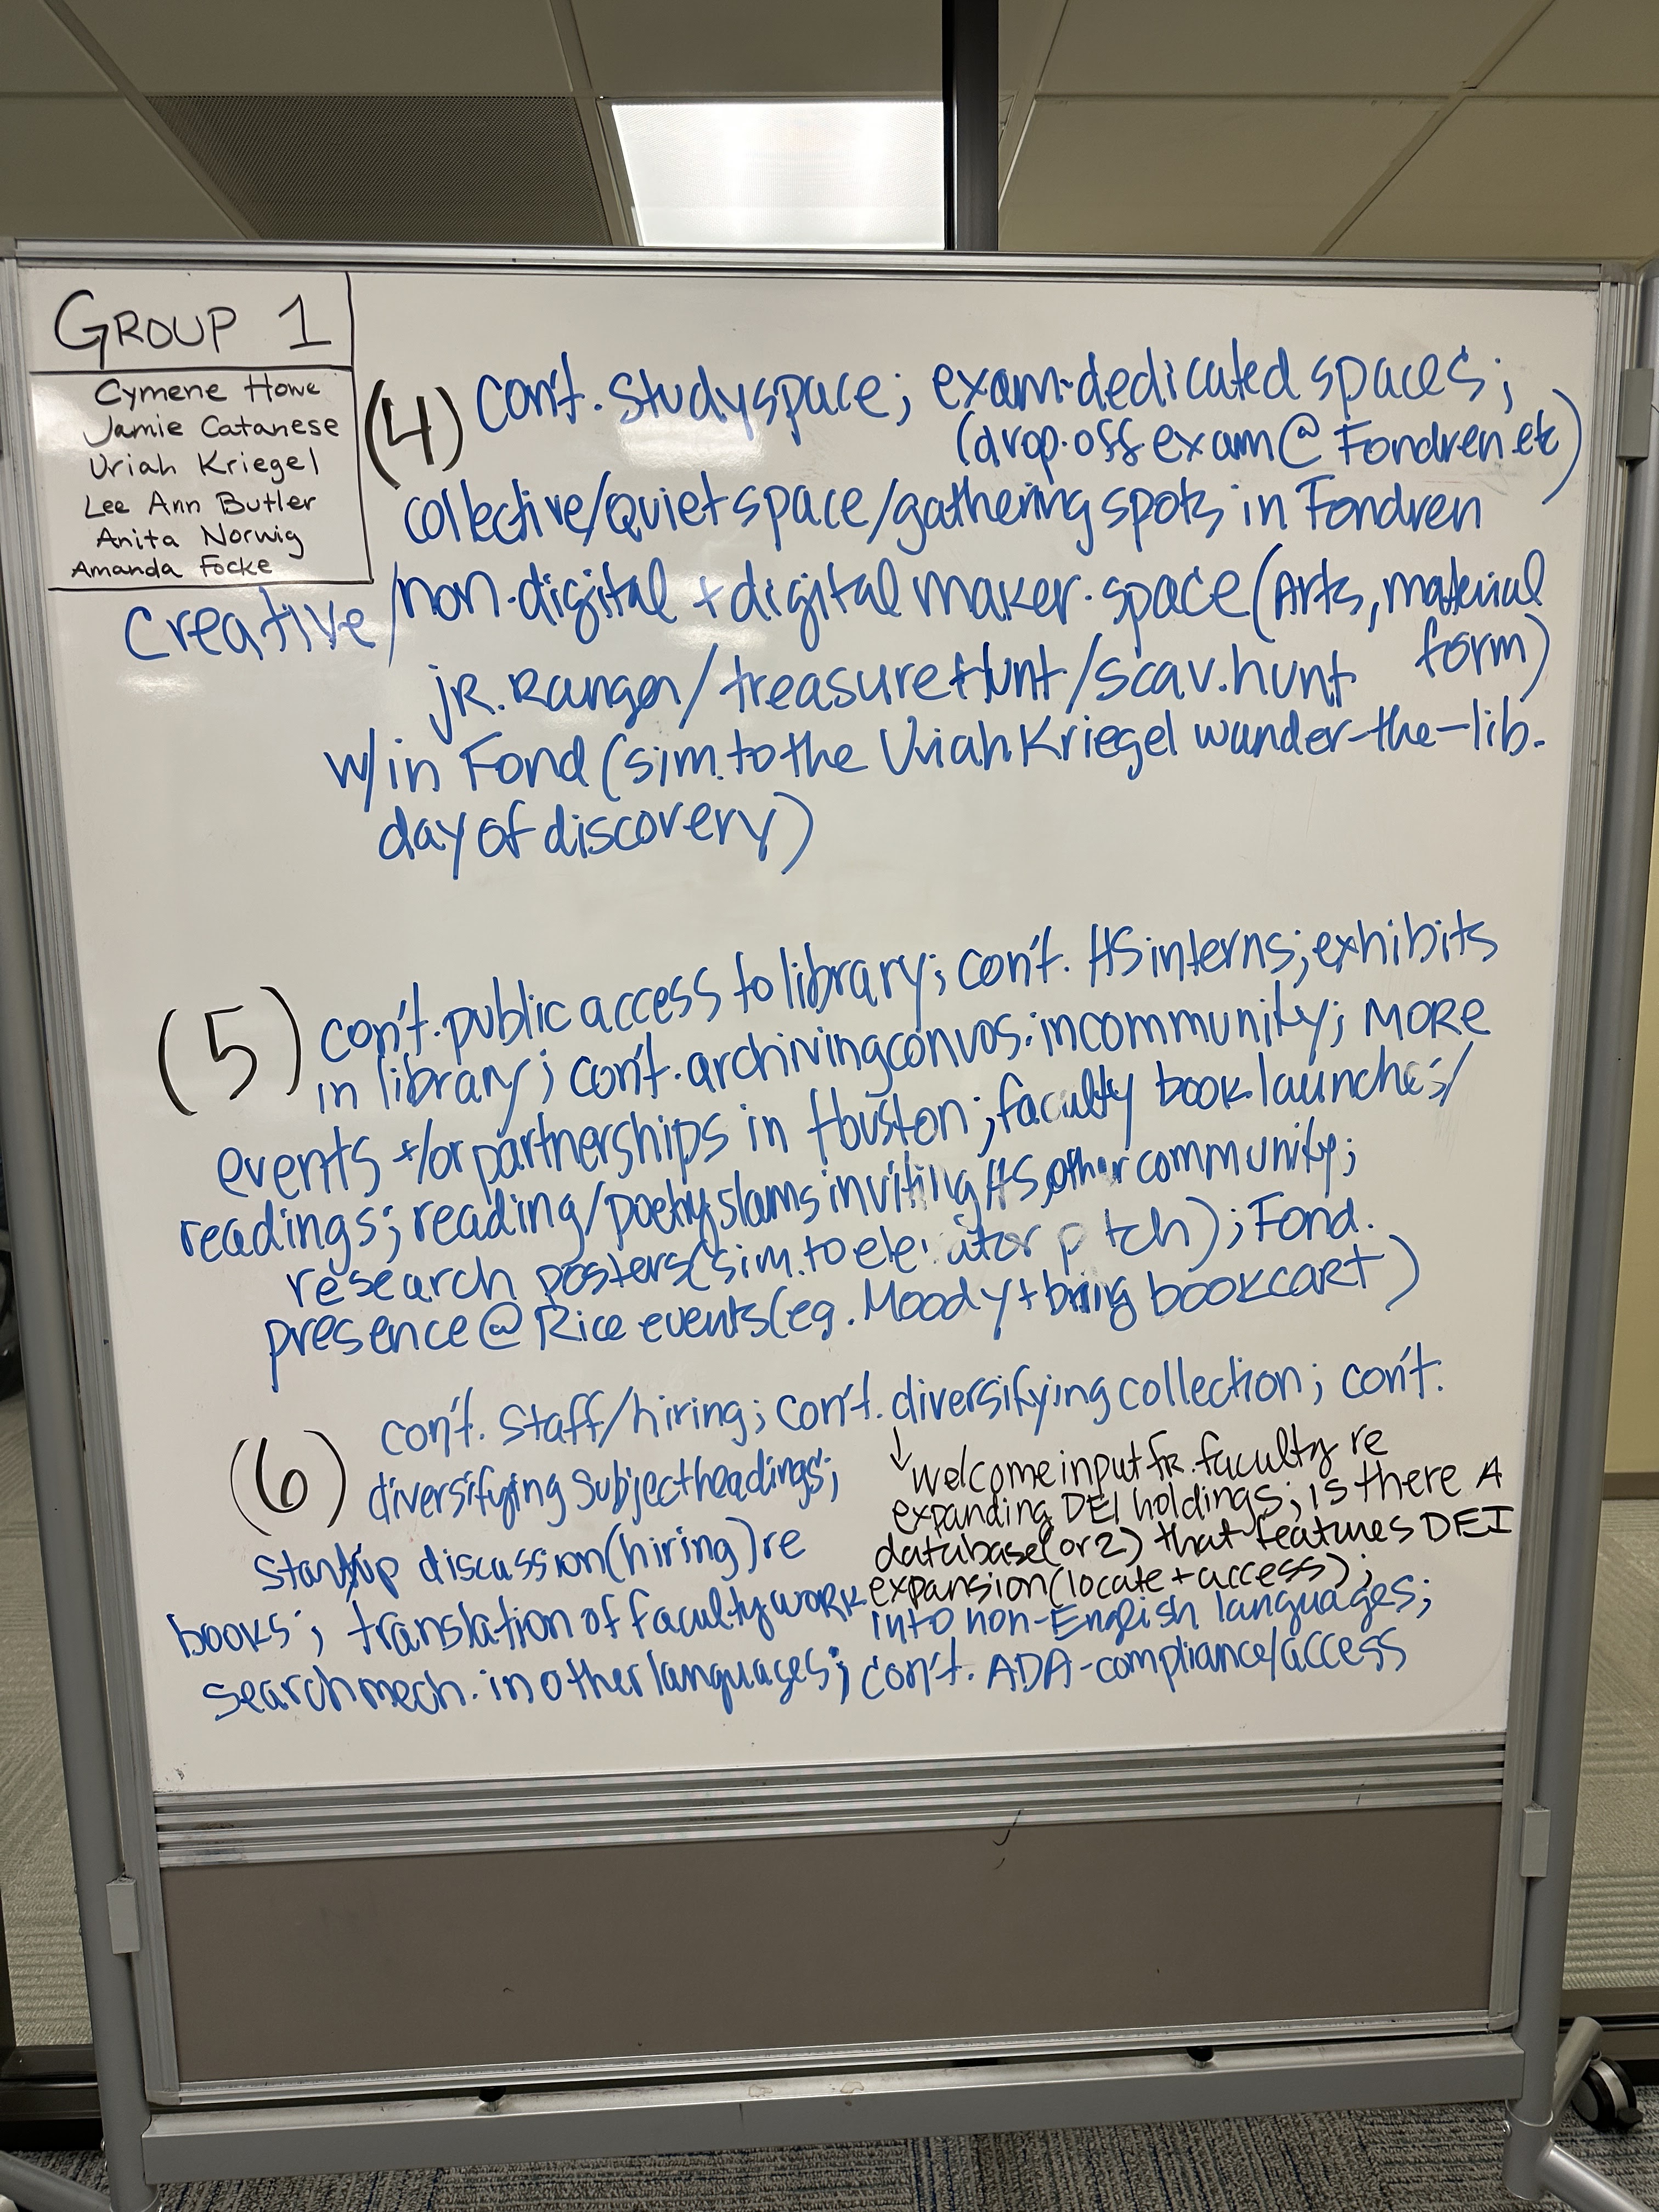 GROUP 1
Cymene Howe
Jamie Catanese
Uriah Kriegel
Lee Ann Butler
Anita Norwig
Amanda Focke
(4) con't. study space; exam-dedicated spaces;
(drop-off exam @ Fondren etc)
collective/quiet space/gathering spots in Fondren
creative/non-digital + digital maker-space (Arts, material
form)
jR. Ranger/treasure Hunt/scav. hunt
w/in Fond (sim. to the Uriah Kriegel wander-the-lib.
day of discovery)
(5) con't. public access to library; con't. HS interns; exhibits
in library; con't. archiving convos. in community; MORE
events +/or partnerships in Houston; faculty book launches/
readings; reading/poetry slams inviting HS, other community;
research posters (sim. to elevator pitch); Fond.
presence @ Rice events (eg. Moody + bring bookcart)
(6) con't. staff/hiring; con't. diversifying collection; con't.
diversifying subject headings;
↓ welcome input fr. faculty re
expanding DEI holdings; is there A
database (or 2) that features DEI
expansion (locate + access);
startup discussion (hiring) re
books; translation of faculty work
into non-English languages;
search mech. in other languages; con't. ADA-compliance/access